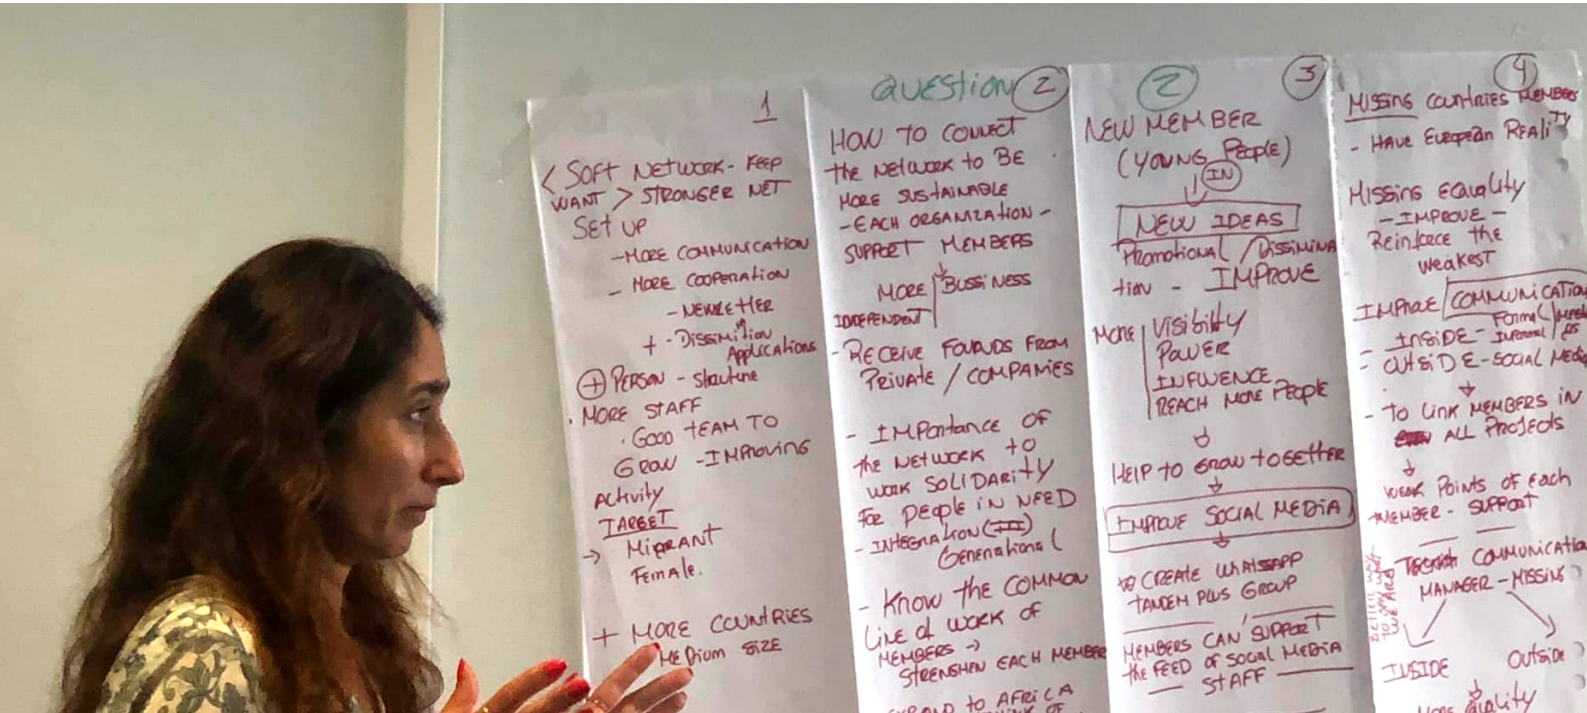 1
< SOFT NETWORK - KEEP
WANT > STRONGER NET
SET UP
- MORE COMMUNICATION
- MORE COOPERATION
- NEWLETTER
+ - Dissimition
Applications
+ PERSON - structure
. MORE STAFF
. GOOD TEAM TO
GROW - IMPROVING
Activity
TARGET
→ MIGRANT
FEMALE.
+ MORE COUNTRIES
MEDIUM SIZE
QUESTION 2
HOW TO CONNECT
the NETWORK to BE
MORE SUSTAINABLE
- EACH ORGANIZATION -
SUPPORT MEMBERS
MORE BUSSINESS
INDEPENDENT
- RECEIVE FOUNDS FROM
PRIVATE / COMPANIES
- IMPORTANCE OF
the NETWORK to
WORK SOLIDARITY
FOR PEOPLE IN NEED
- INTEGRATION (III)
Generational
- KNOW the COMMON
LINE of WORK OF
MEMBERS →
STRENSHEN EACH MEMBER
to AFRICA
OF
2 3
NEW MEMBER
(YOUNG PEOPLE)
IN
NEW IDEAS
Promotional / DISSIMINA
tion - IMPROVE
MORE Visibility
POWER
INFLUENCE
REACH MORE PEOPLE
HELP to GROW TOGETHER
IMPROVE SOCIAL MEDIA
CREATE WHATSAPP
TANDEM PLUS GROUP
MEMBERS CAN SUPPORT
the FEED OF SOCIAL MEDIA
STAFF
4
MISSING COUNTRIES MEMBERS
- HAVE EUROPEAN REALITY
MISSING EQUALITY
- IMPROVE -
Reinforce the
weakest
IMPROVE COMMUNICATION
- INSIDE - Formal /
Informal /
- OUTSIDE - SOCIAL MEDIA
- TO LINK MEMBERS IN
ALL PROJECTS
WEAK POINTS OF EACH
MEMBER - SUPPORT
COMMUNICATION
MANAGER - MISSING
BETTER WAY
TO SAY WHO
WE ARE
INSIDE Outside
quality